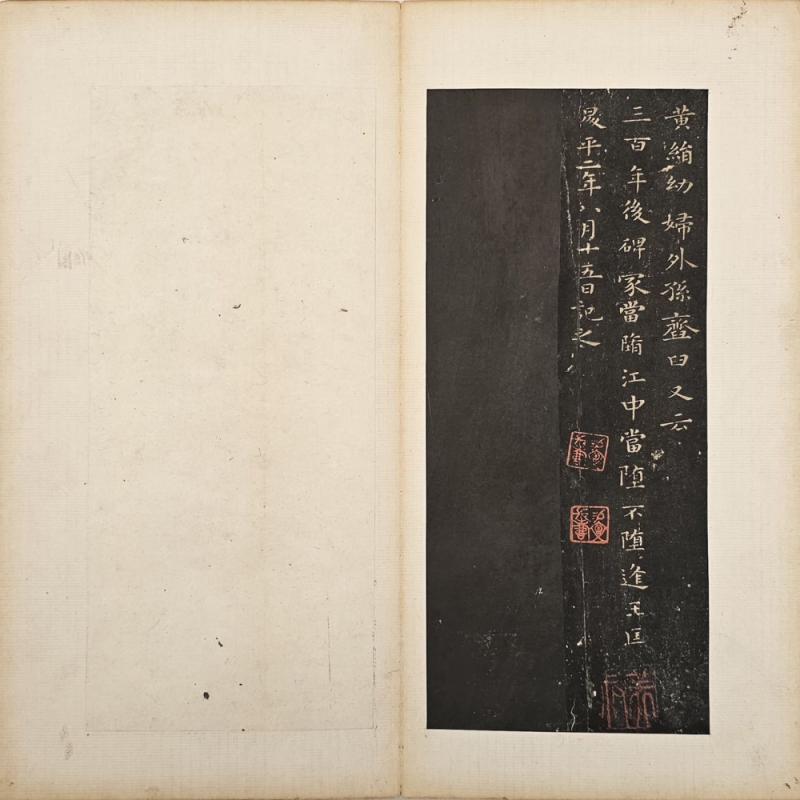 黃絹幼婦外孫齏臼又云
三百年後碑冢當隋江中當堕不堕逢王匡
平二年八月十五日記之